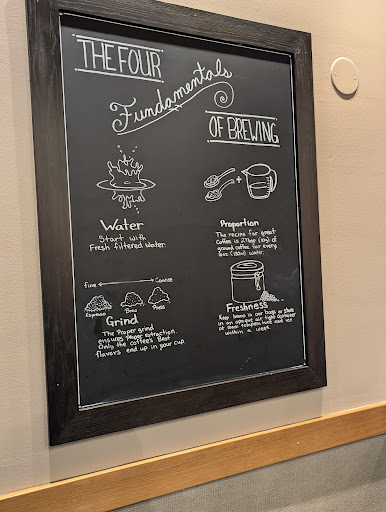 THE FOUR
Fundamentals
OF BREWING
Water
Start with
Fresh filtered water.
Proportion
The recipe for great
Coffee is 2Tbsp (10g) of
ground coffee for every
6oz (180ml) water.
Fine Coarse
Espresso Brew Press
Grind
The Proper grind
ensures proper extraction.
Only the coffee's Best
flavors end up in your cup.
Freshness
Keep beans in our bags or place
in an opaque air tight container
at room temperature and use
within a week.